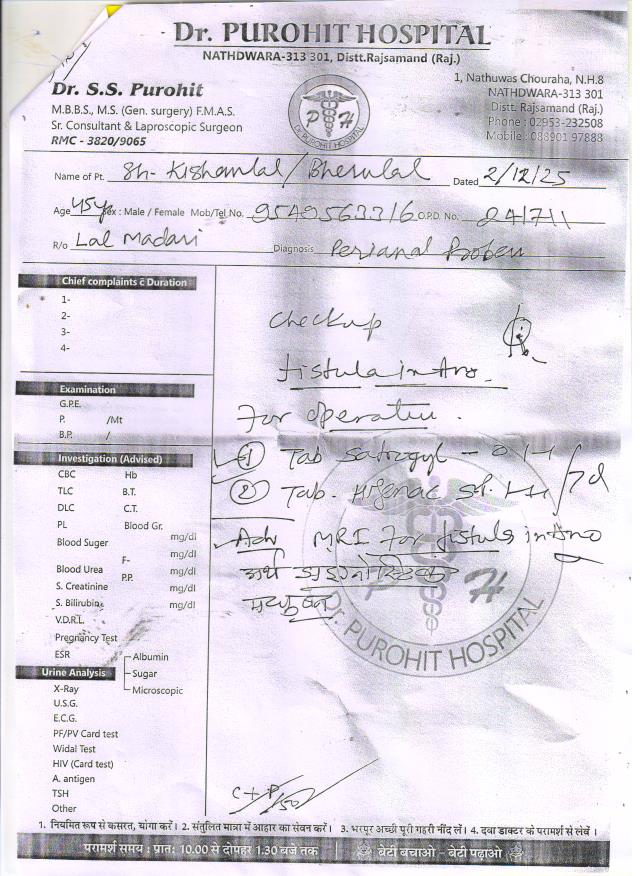 Dr. PUROHIT HOSPITAL
NATHDWARA-313 301, Distt.Rajsamand (Raj.)
Dr. S.S. Purohit
M.B.B.S., M.S. (Gen. surgery) F.M.A.S.
Sr. Consultant & Laproscopic Surgeon
RMC - 3820/9065
P H
Dr. PUROHIT HOSPITAL
1, Nathuwas Chouraha, N.H.8
NATHDWARA-313 301
Distt. Rajsamand (Raj.)
Phone : 02953-232508
Mobile : 088901 97888
Name of Pt. Sh- Kishanlal / Bherulal Dated 2/12/25
Age 45y Sex : Male / Female Mob/Tel No. 9549563316 O.P.D. No. 24711
R/o Lal Madari Diagnosis Perianal
Chief complaints c̄ Duration
1-
2-
3-
4-
Examination
G.P.E.
P. /Mt
B.P. /
Investigation (Advised)
CBC Hb
TLC B.T.
DLC C.T.
PL Blood Gr.
Blood Suger mg/dl
F- mg/dl
Blood Urea P.P. mg/dl
S. Creatinine mg/dl
S. Bilirubine mg/dl
V.D.R.L.
Pregnancy Test
ESR
Urine Analysis
Albumin
Sugar
Microscopic
X-Ray
U.S.G.
E.C.G.
PF/PV Card test
Widal Test
HIV (Card test)
A. antigen
TSH
Other
Checkup
fistula in Ano
For operation.
1 Tab Satrogyl -
2 Tab. Hifenac 7d
Adv MRI For fistula in Ano
अर्थ डाइग्नोस्टिक
Dr. PUROHIT HOSPITAL
P H
1. नियमित रूप से कसरत, योगा करें। 2. संतुलित मात्रा में आहार का सेवन करें। 3. भरपूर अच्छी पूरी गहरी नींद लें। 4. दवा डाक्टर के परामर्श से लेवें।
परामर्श समय : प्रात: 10.00 से दोपहर 1.30 बजे तक
बेटी बचाओ - बेटी पढ़ाओ